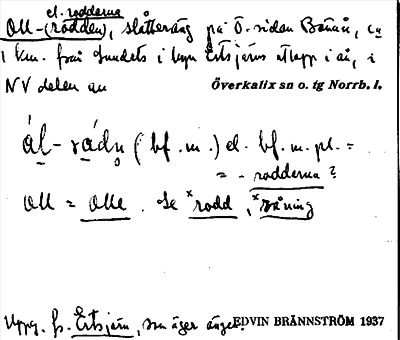 el. rodderna
Oll-(rodden), slåtteräng på Ö. sidan Bönån, ca
1 km. från sundets i byn Ertsjärvs utlopp i ån, i
NV delen av Överkalix sn o. tg Norrb. l.
ál-rádn (bf. m.) el. bf. m. pl. =
= -rodderna?
Oll = Olle. Se ˣrodd, ˣråning
Uppg. fr. Ertsjärv, som äger ängen. EDVIN BRÄNNSTRÖM 1937